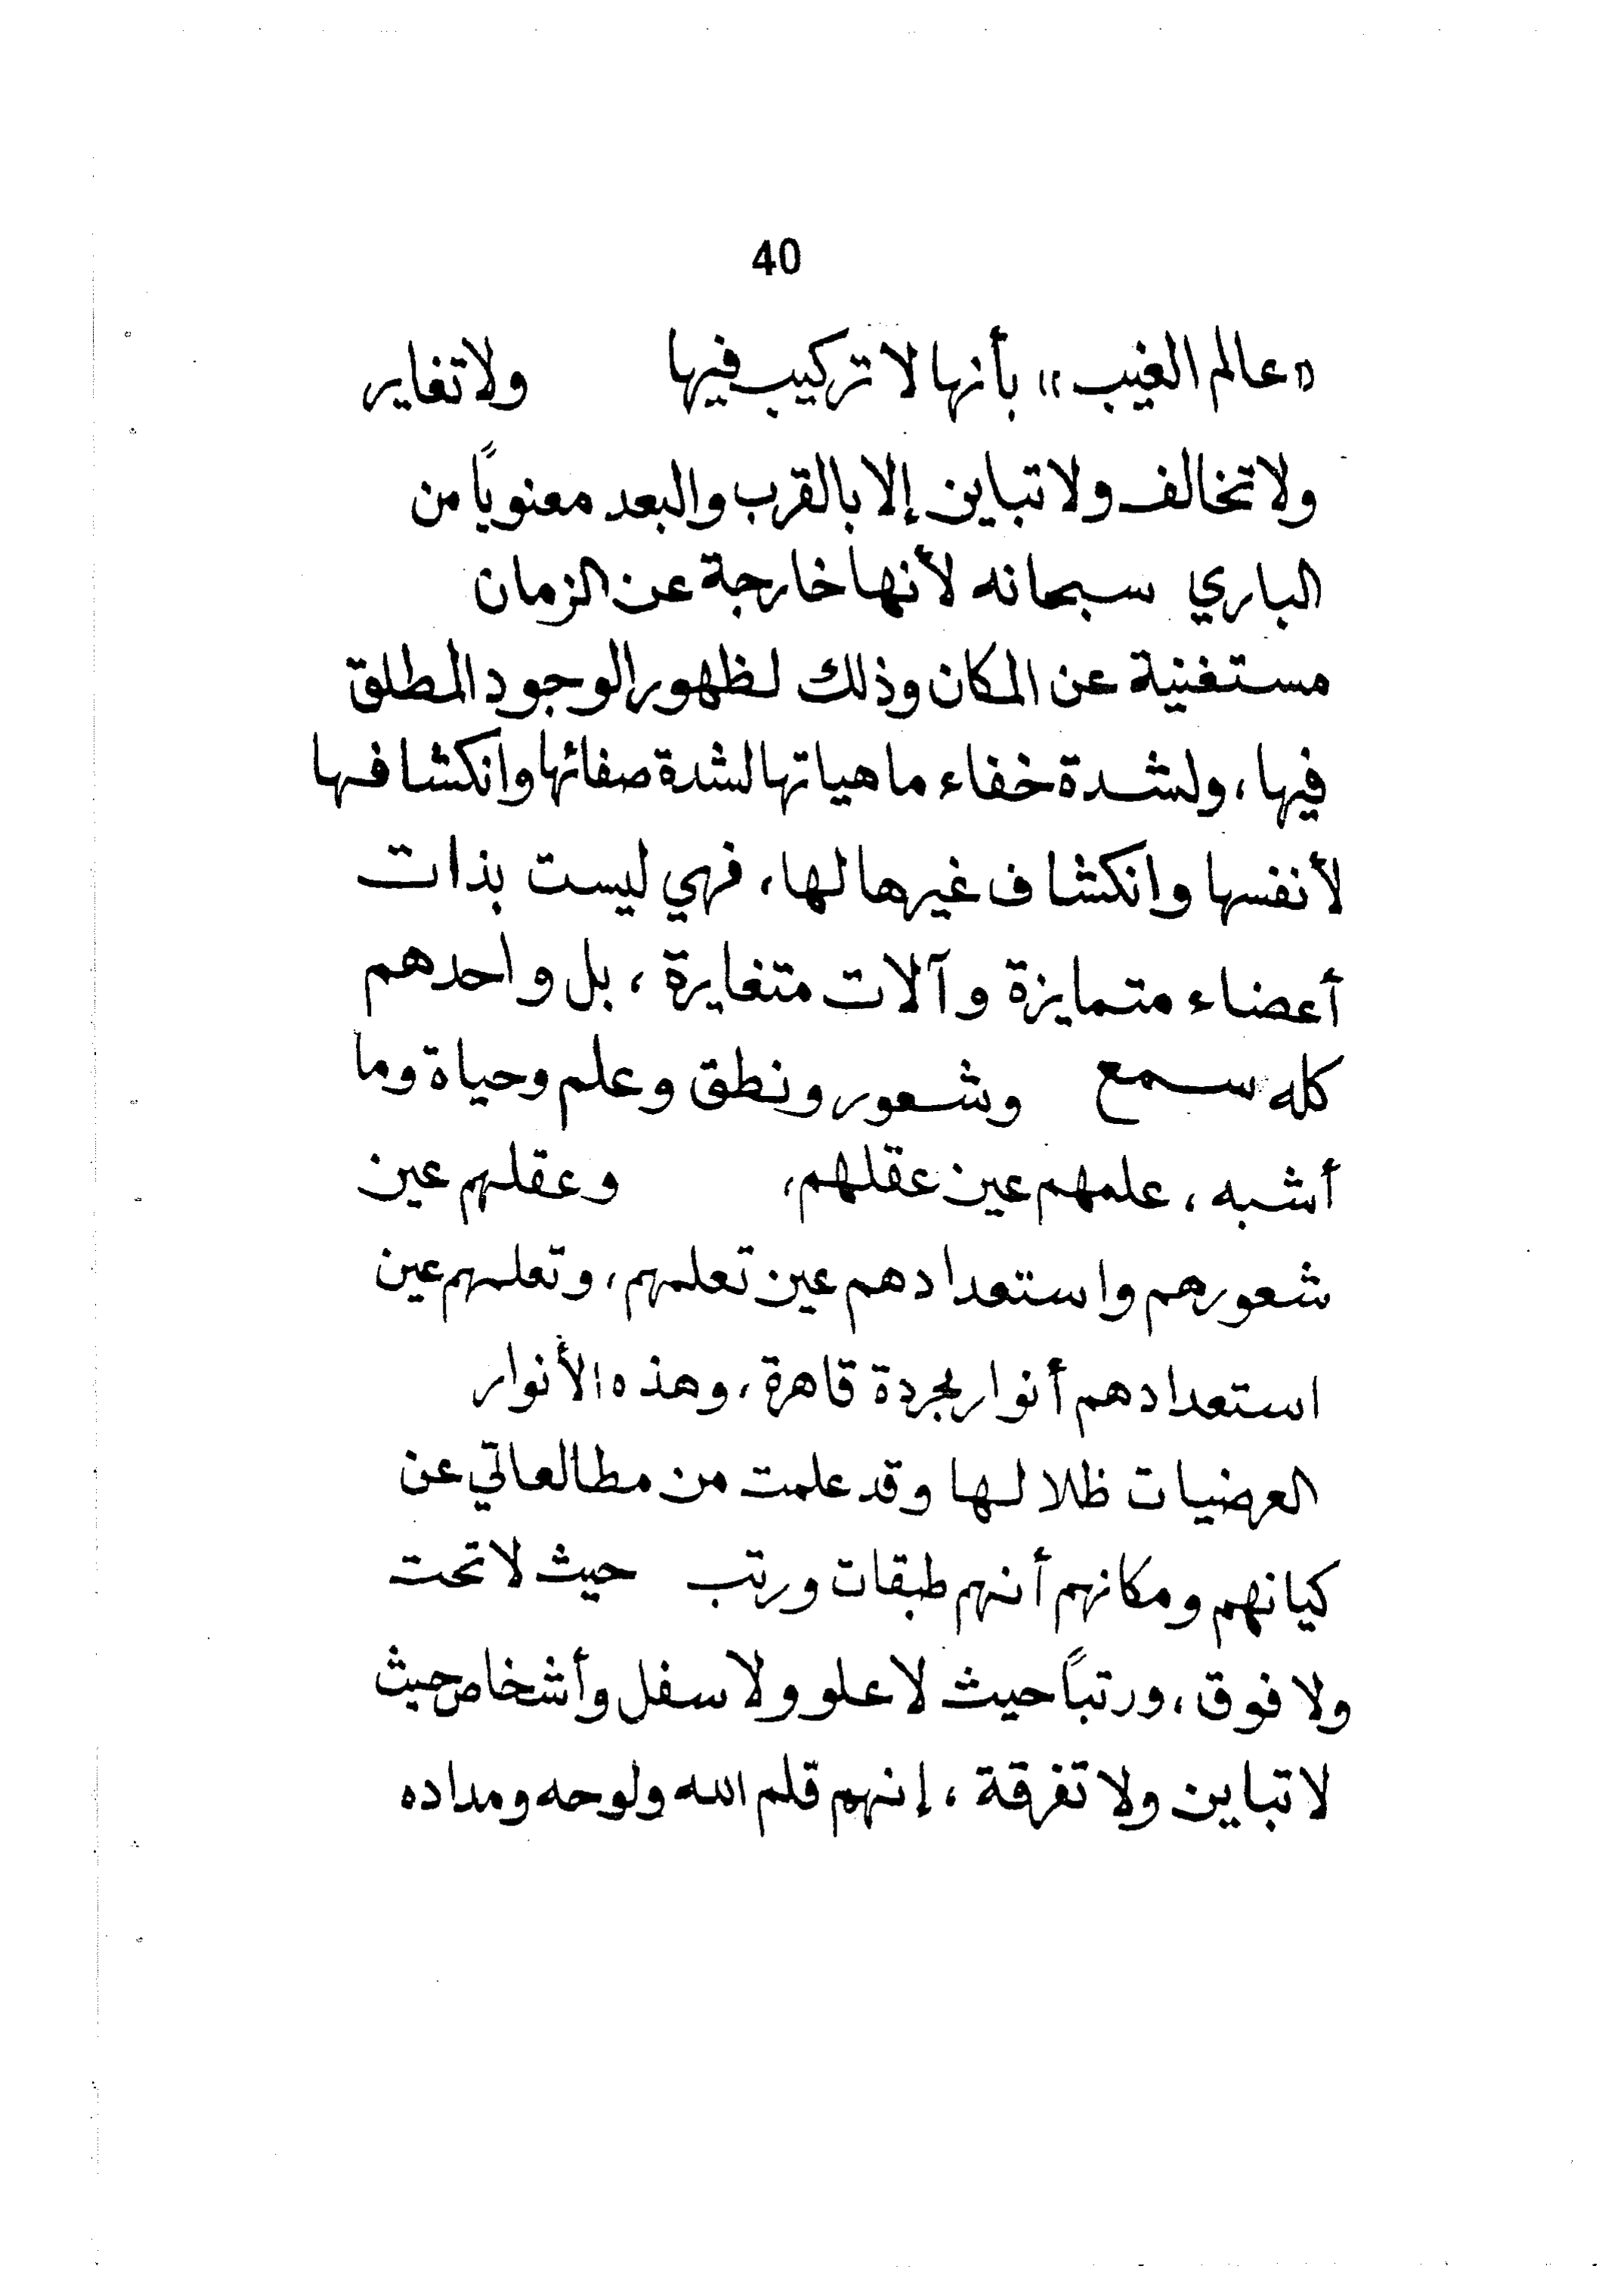 40
«عالم الغيب» بأنها لا تركيب فيها ولا تغاير
ولا تخالف ولا تباين إلا بالقرب والبعد معنوياً من
الباري سبحانه لأنها خارجة عن الزمان
مستغنية عن المكان وذلك لظهور الوجود المطلق
فيها، ولشدة خفاء ماهياتها لشدة صفائها وانكشافها
لأنفسها وانكشاف غيرها لها، فهي ليست بذات
أعضاء متمايزة وآلات متغايرة، بل واحدهم
كله سمع وشعور ونطق وعلم وحياة وما
أشبه، علمهم عين عقلهم، وعقلهم عين
شعورهم واستعدادهم عين تعلمهم، وتعلمهم عين
استعدادهم أنوار مجردة قاهرة، وهذه الأنوار
العرضيات ظلالها وقد علمت من مطالعاتي عن
كيانهم ومكانهم أنهم طبقات ورتب حيث لا تحت
ولا فوق، ورتباً حيث لا علو ولا سفل وأشخاص حيث
لا تباين ولا تفرقة، إنهم قلم الله ولوحه ومداده